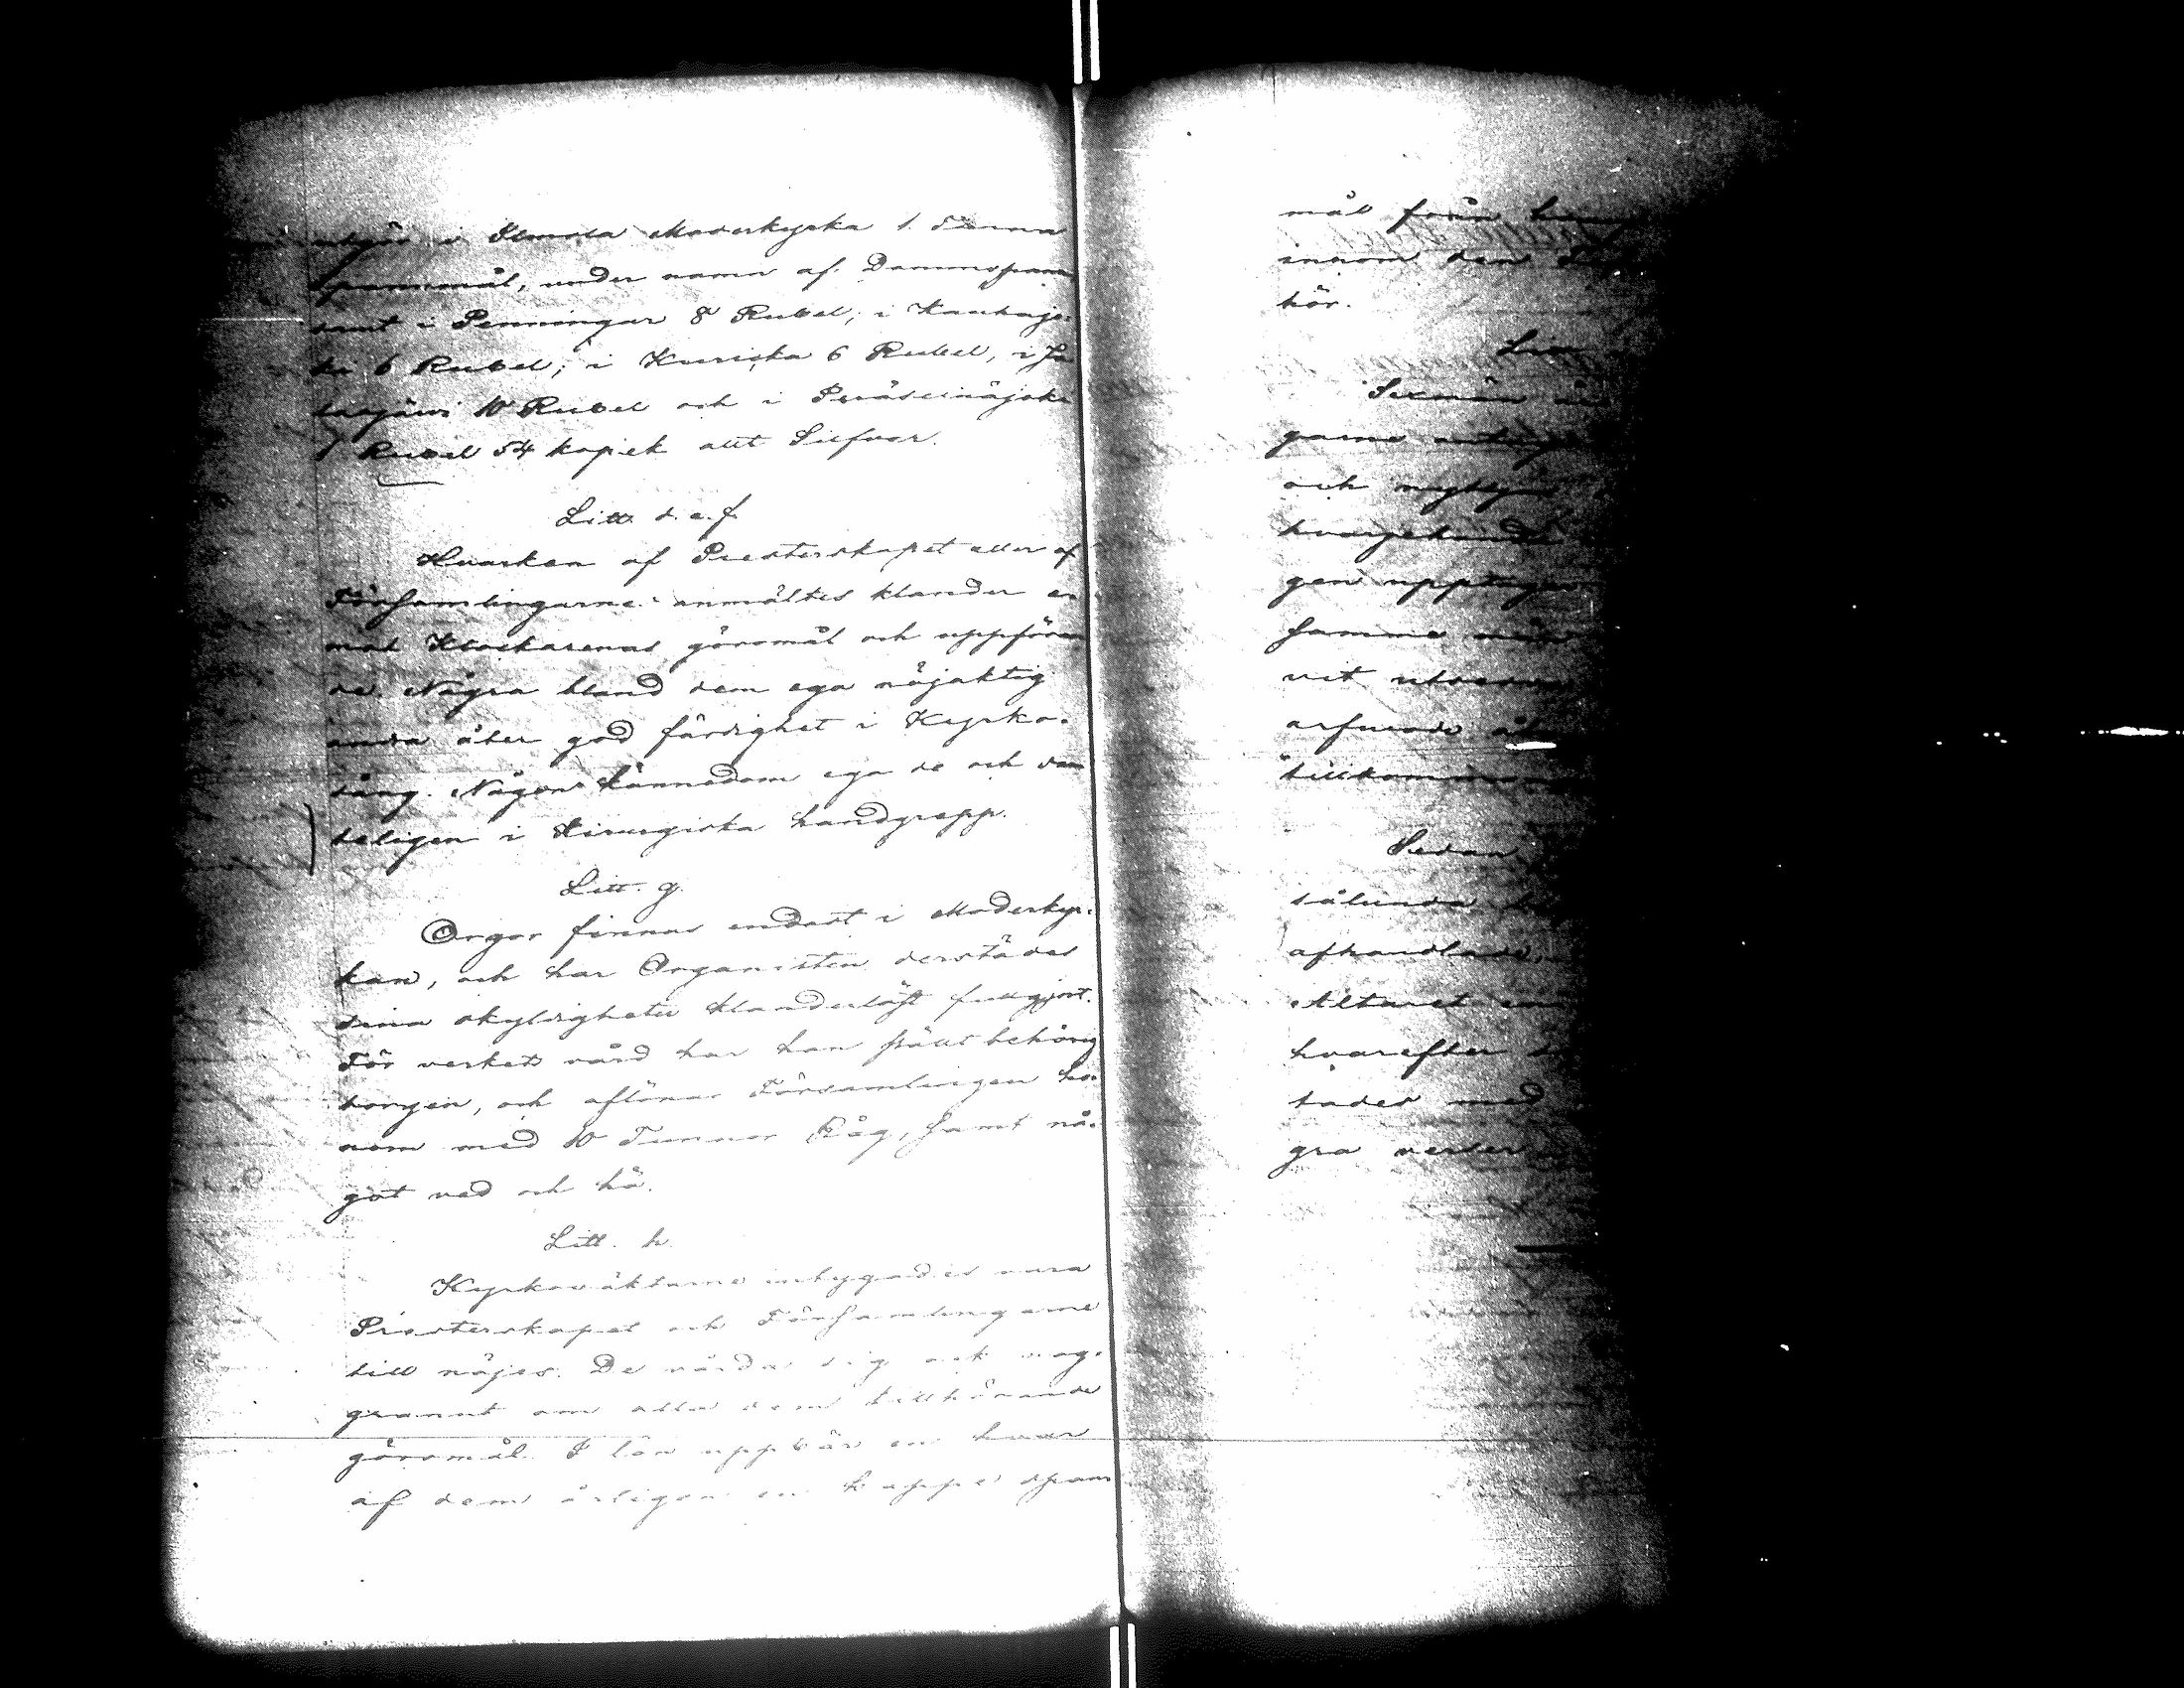 utgör i Ilmola Moderkyrka 1. Tunna
spannmål, under namn af Dammspann
samt i Penningar 8 Rubel; i Kauhajo-
ki 6 Rubel; i Kurikka 6 Rubel, i Ja
lasjärvi 10 Rubel och i Peräseinäjoki
1 Rubel 54 kopek allt Silfver.
Litt. d. e. f.
Hvarken af Presterskapet eller af
Församlingarne anmältes klander e
mot Klockarenas göromål och uppföran
de. Några bland dem ega nöjaktig
andra åter god färdighet i Kyrko-
sång. Någon kännedom ega de och van
teligen i Kirurgiska handgrepp.
Litt. g.
Orgor finnas endast i Moderkyr-
kan, och har Organisten derstädes
sina skyldigheter klanderlöst fullgjort.
För verkets vård har han ställt behörig
borgen, och aflönar Församlingen ho-
nom med 10 Tunnor Råg, samt nå-
got ved och hö.
Litt. h.
Kyrkoväktarne intygades vara
Presterskapet och Församlingarne
till nöjes. De vårda sig ock nog-
grannt om alla dem tillhörande
göromål. I lön uppbär en hvar
af dem årligen en kappe span
mål från
inom den
hör.
Sexmän
garne
och
hvarjehanda
gen upptagen
samma
vit
arfvode
tillkommer
Sedan
sålunda
afhandlade,
Altaret
hvarefter
tades med
gra verser